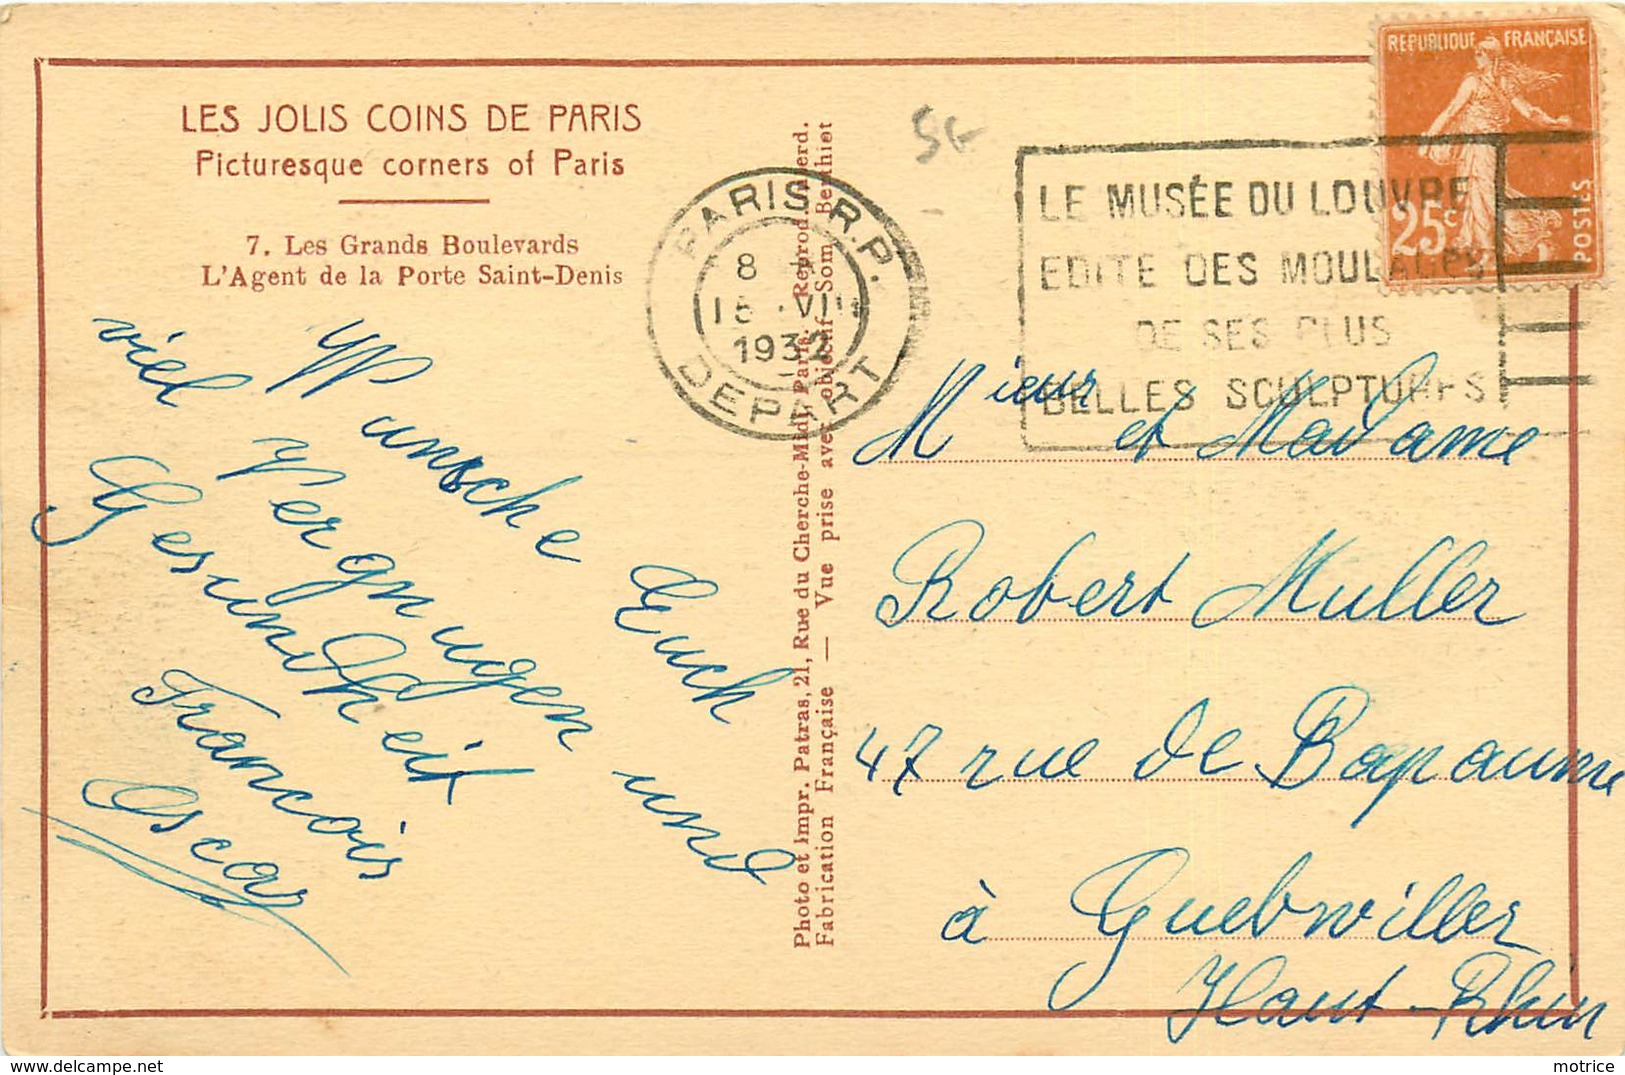 LES JOLIS COINS DE PARIS
Picturesque corners of Paris
7. Les Grands Boulevards
L'Agent de la Porte Saint-Denis
Wunsche Euch
viel Vergnugen und
Gesundheit
Francois
Oscar
Photo et Impr. Patras, 21, Rue du Cherche-Midi, Paris. Reprod. Interd.
Fabrication Française — Vue prise avec objectif Som Berthiot
PARIS R.P.
8
15 VIII
1932
DEPART
LE MUSÉE DU LOUVRE
EDITE DES MOULAGES
DE SES PLUS
BELLES SCULPTURES
REPUBLIQUE FRANÇAISE
25c
POSTES
Mieur et Madame
Robert Muller
47 rue de Bapaume
à Guebwiller
Haut-Rhin
motrice